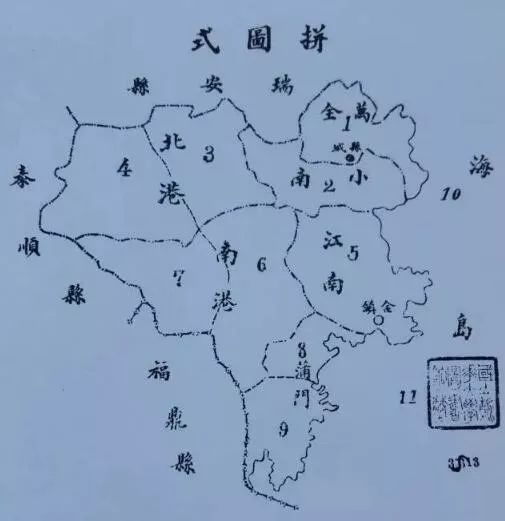 拼圖式
瑞安縣
萬全
1
縣城
小南
2
北港
3
4
泰順縣
海島
10
江南
5
金鎮
南港
6
7
8
蒲門
9
福鼎縣
11